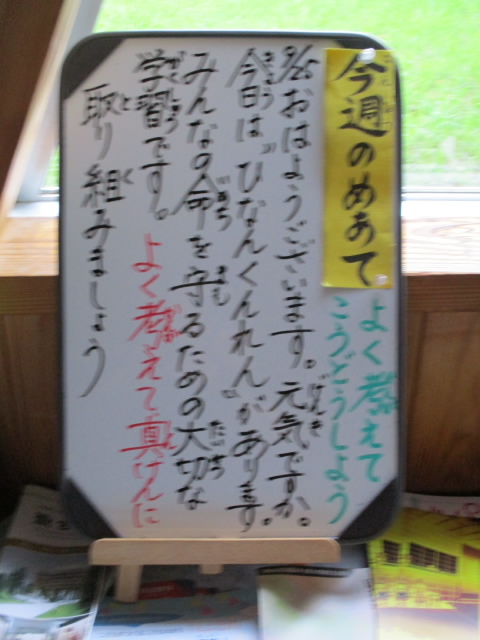 今週のめあて
よく考えて
こうどうしよう
8/25 おはようございます。元気ですか。
今日は"ひなんくんれん"があります。
みんなの命を守るための大切な
学習です。よく考えて真けんに
取り組みましょう